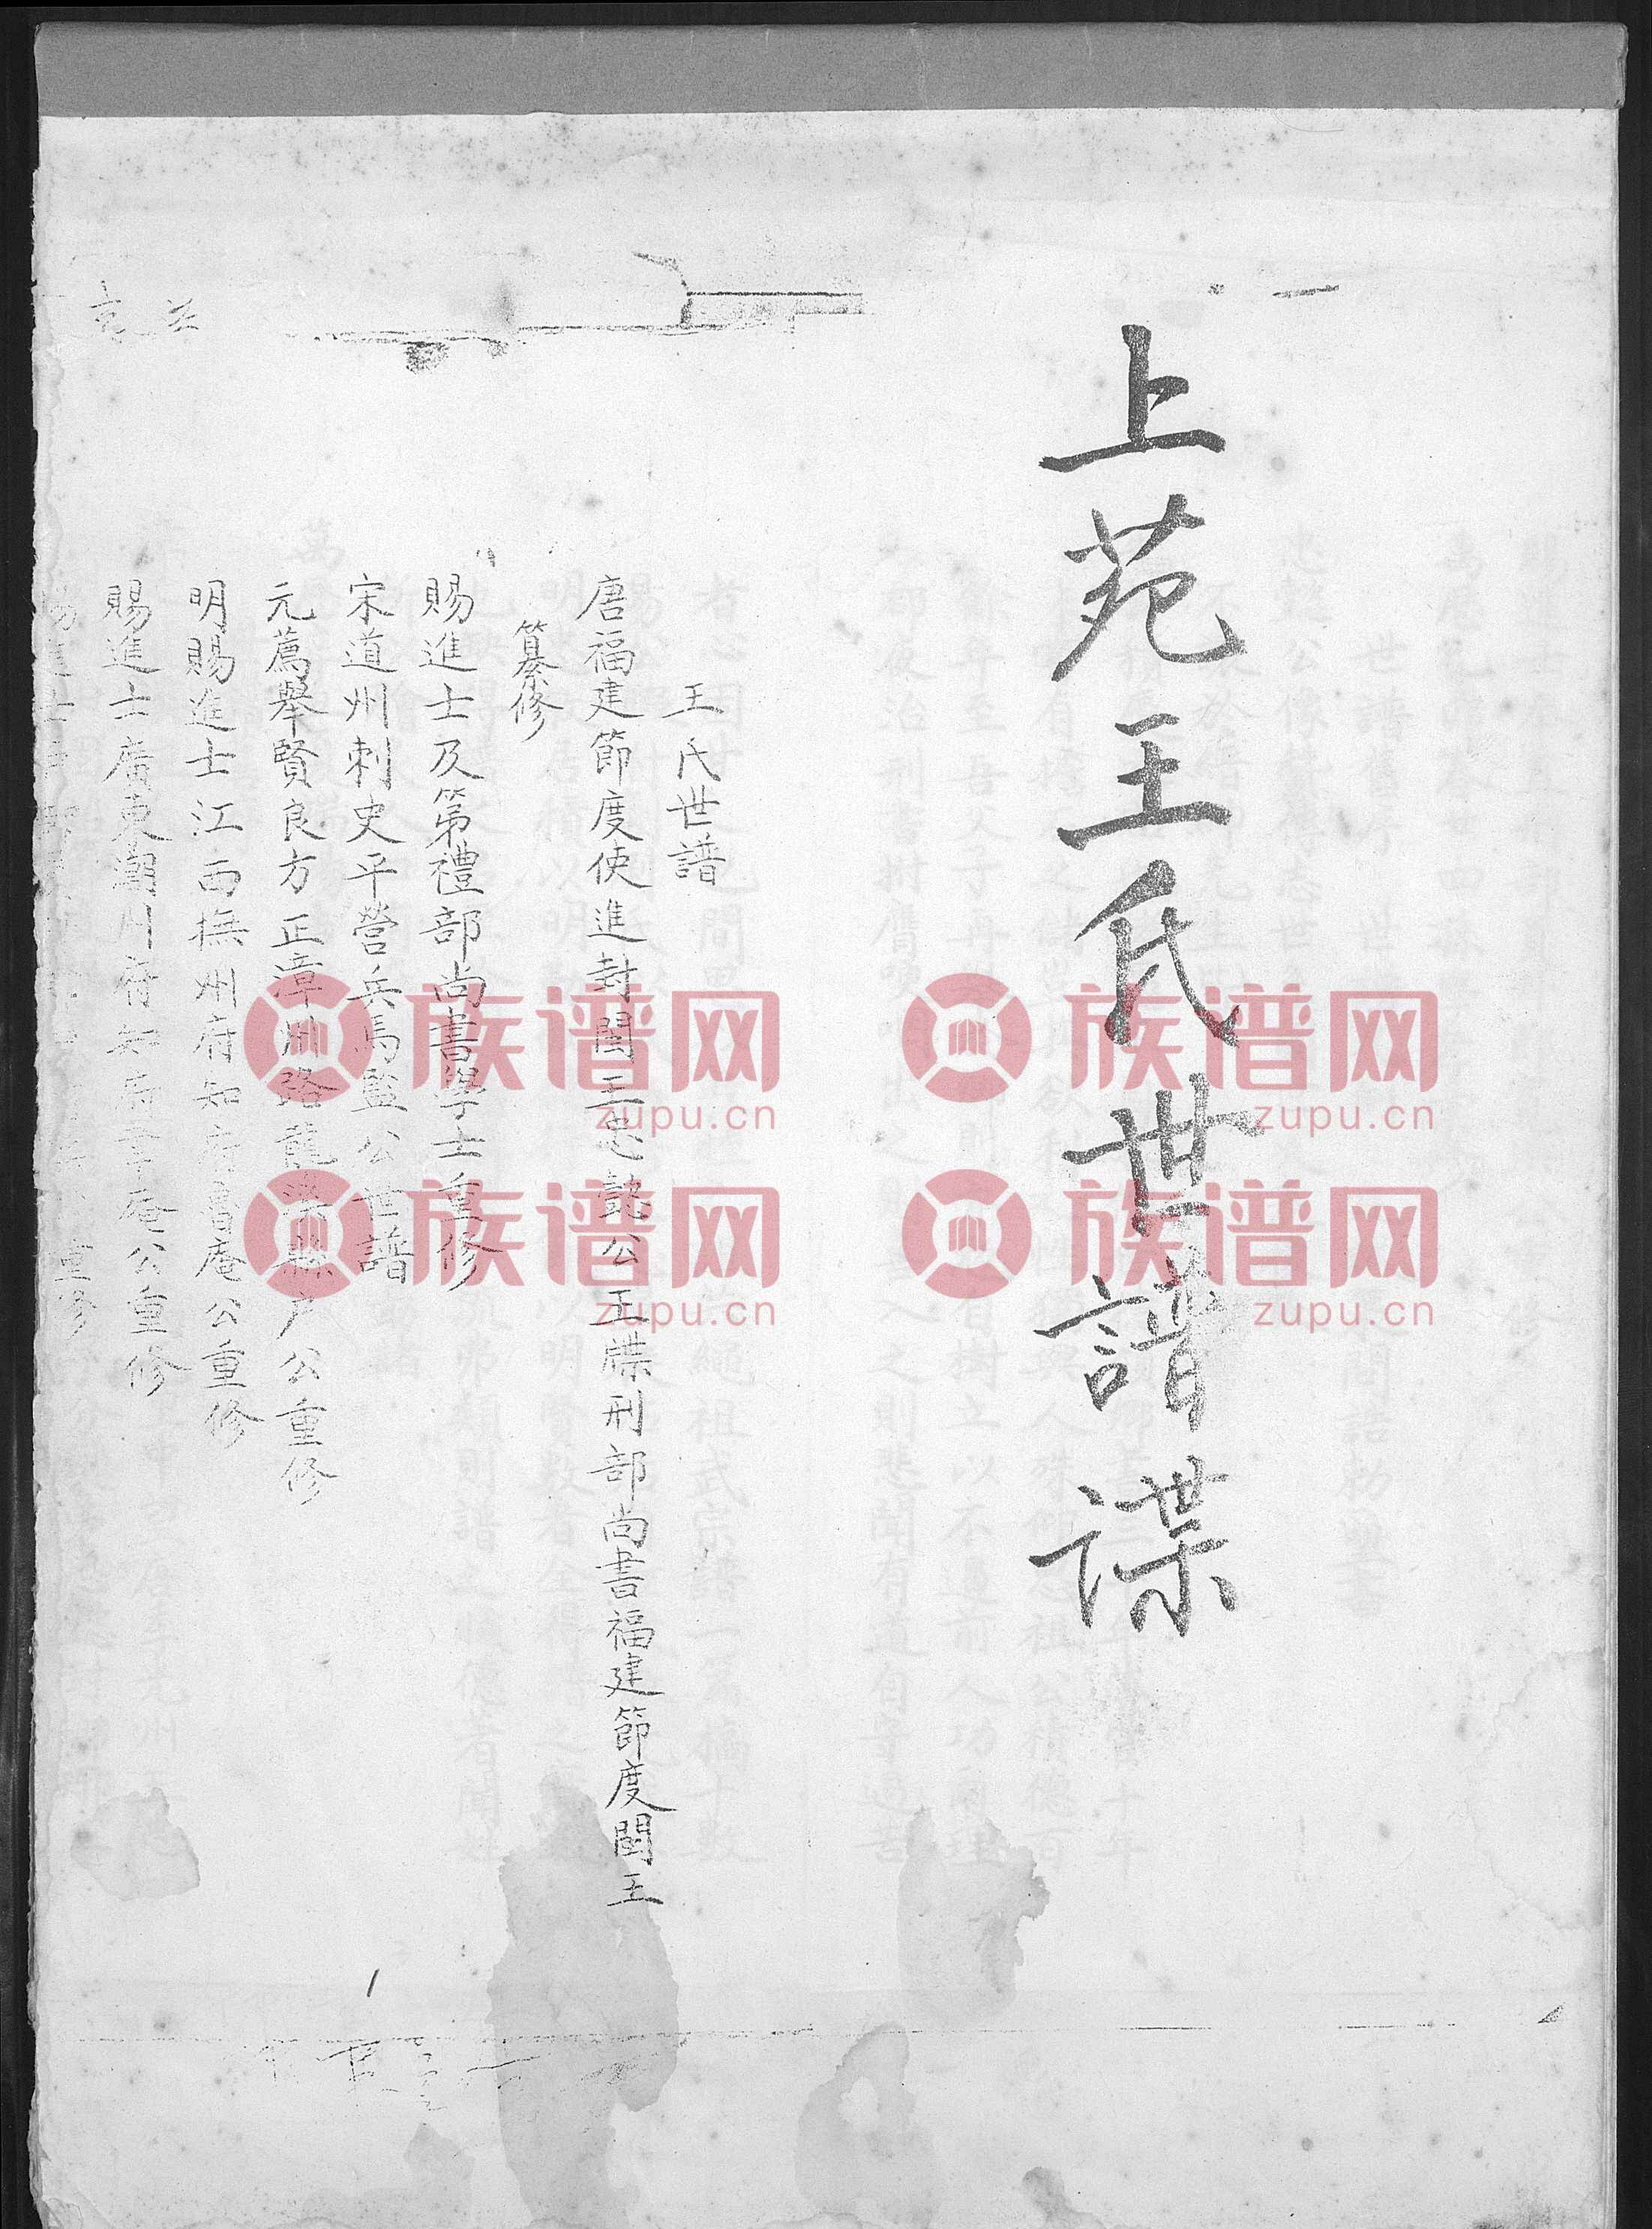 上苑王氏世譜諜
王氏世譜
唐福建節度使進封閩王忠懿公王牒刑部尚書福建節度閩王
纂修
賜進士及第禮部尚書學士重修
宋道州刺史平營兵馬監公世譜
元薦舉賢良方正漳州路龍溪縣尹公重修
明賜進士江西撫州府知府魯庵公重修
賜進士廣東潮州府知府庵公重修
進士重修
族谱网
zupu.cn
族谱网
zupu.cn
族谱网
zupu.cn
族谱网
zupu.cn